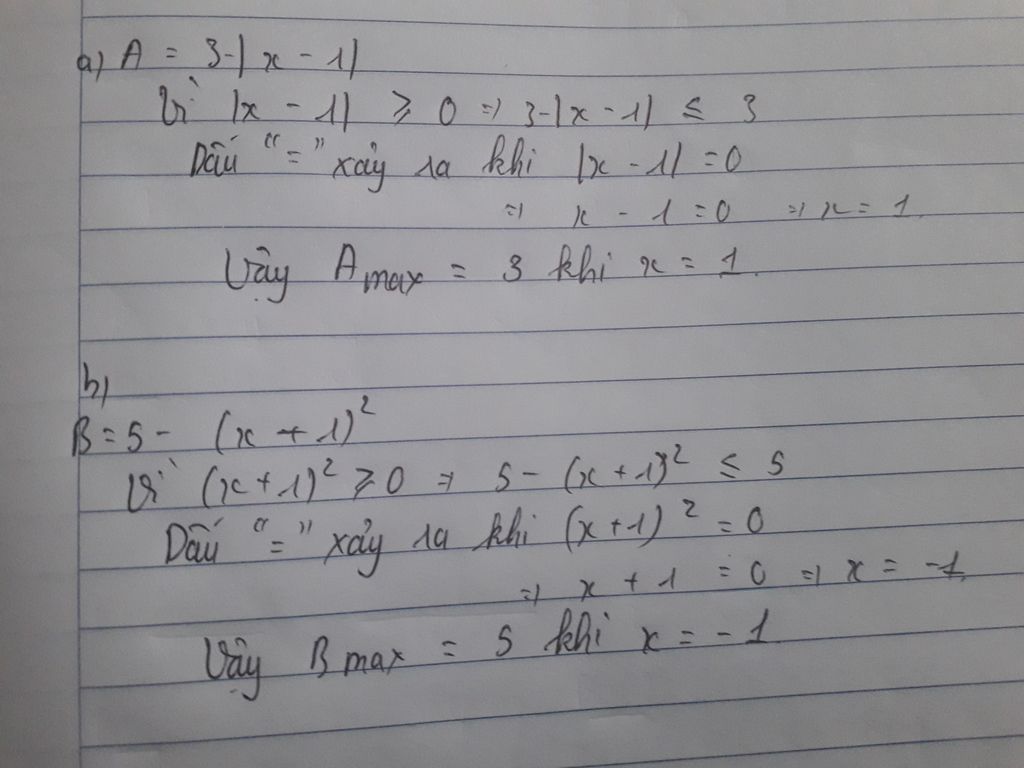 a) A = 3-|x - 1|
Vì |x - 1| ≥ 0 ⇒ 3-|x - 1| ≤ 3
Dấu "=" xảy ra khi |x - 1| = 0
⇒ x - 1 = 0 ⇒ x = 1
Vậy A max = 3 khi x = 1.
b)
B = 5 - (x + 1)²
Vì (x + 1)² ≥ 0 ⇒ 5 - (x + 1)² ≤ 5
Dấu "=" xảy ra khi (x + 1)² = 0
⇒ x + 1 = 0 ⇒ x = -1
Vậy B max = 5 khi x = -1